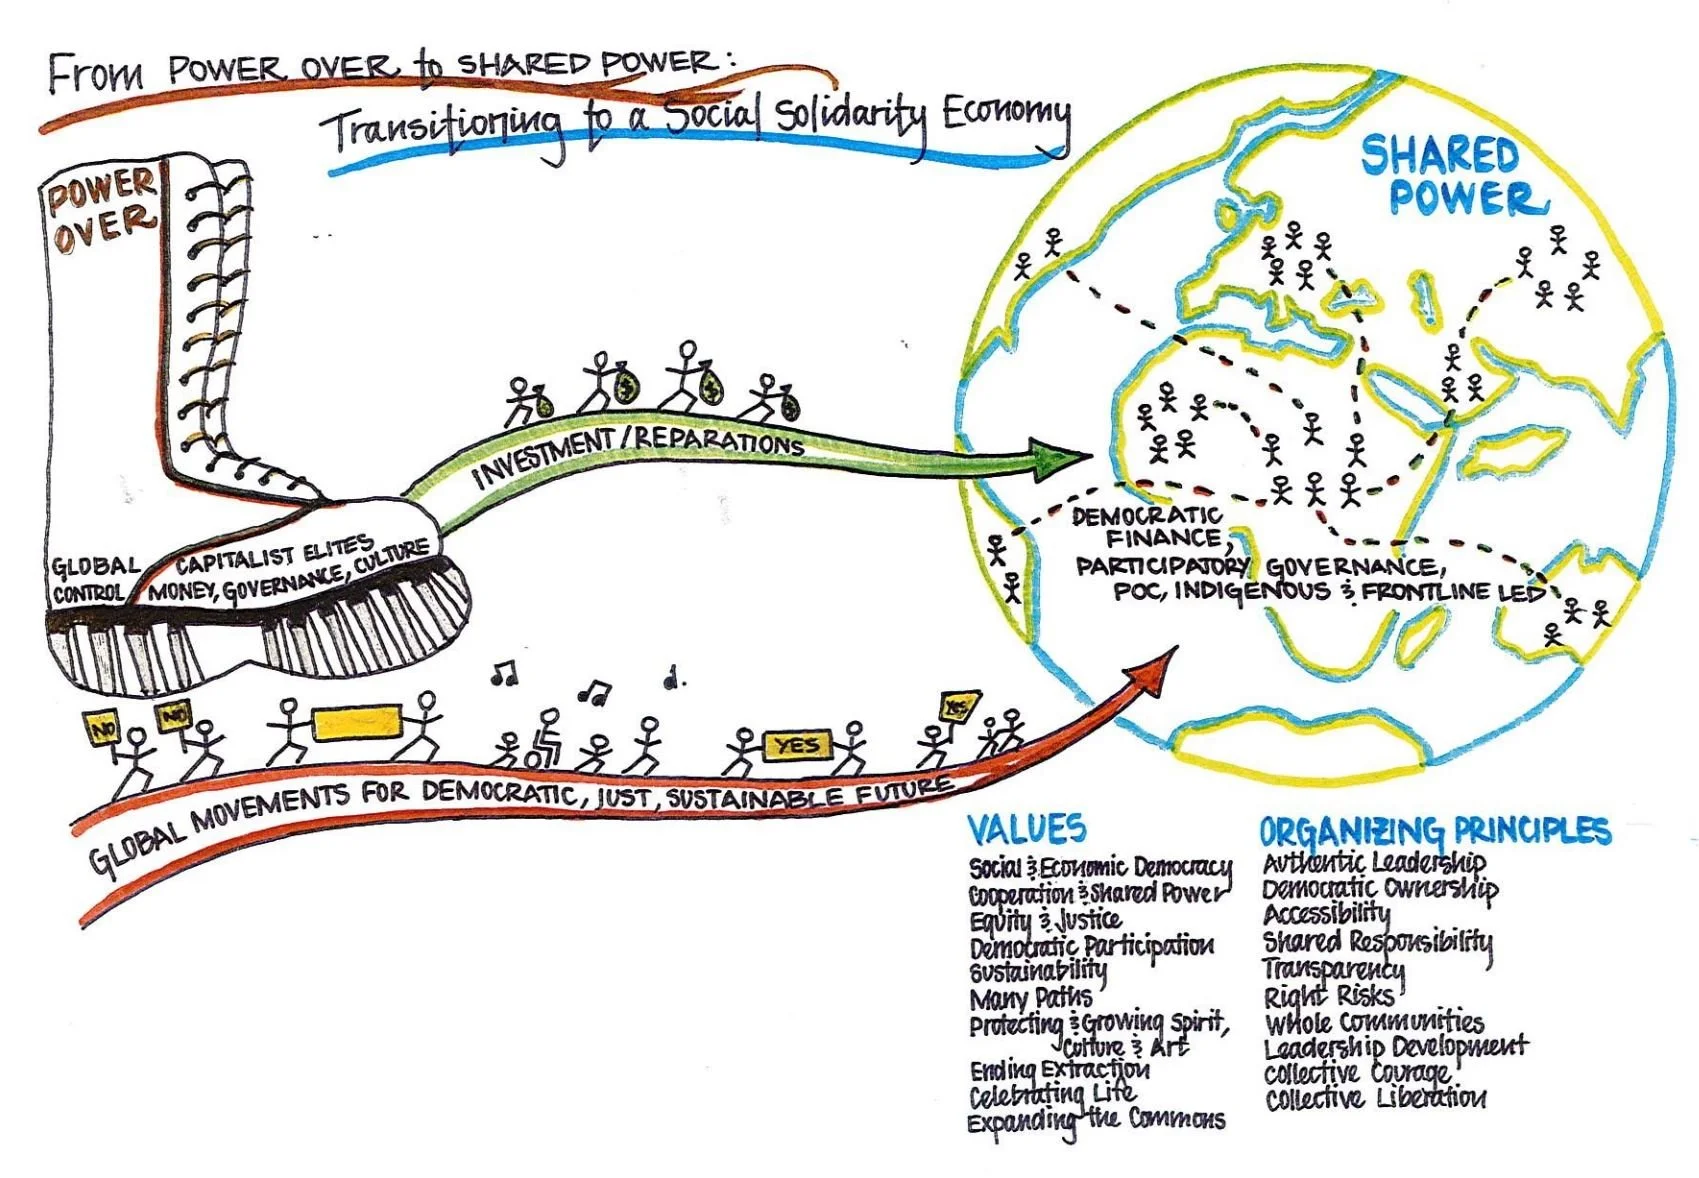 From POWER OVER to SHARED POWER:
Transitioning to a Social Solidarity Economy
POWER
OVER
GLOBAL
CONTROL
CAPITALIST ELITES
MONEY, GOVERNANCE, CULTURE
INVESTMENT/REPARATIONS
$
$
$
$
SHARED
POWER
DEMOCRATIC
FINANCE,
PARTICIPATORY GOVERNANCE,
POC, INDIGENOUS & FRONTLINE LED
NO
NO
YES
YES
GLOBAL MOVEMENTS FOR DEMOCRATIC, JUST, SUSTAINABLE FUTURE
VALUES
Social & Economic Democracy
Cooperation & Shared Power
Equity & Justice
Democratic Participation
Sustainability
Many Paths
Protecting & Growing Spirit,
Culture & Art
Ending Extraction
Celebrating Life
Expanding the Commons
ORGANIZING PRINCIPLES
Authentic Leadership
Democratic Ownership
Accessibility
Shared Responsibility
Transparency
Right Risks
Whole Communities
Leadership Development
Collective Courage
Collective Liberation